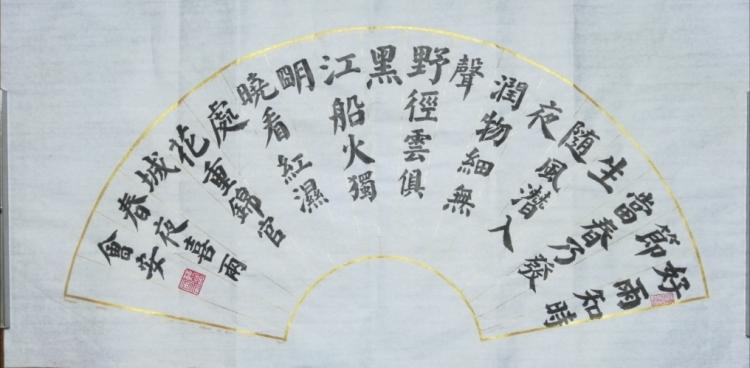 好雨知時
節
當春乃發
生
随風潛入
夜
潤物細無
聲
野徑雲俱
黑
江船火獨
明
曉看紅濕
處
花重錦官
城
春夜喜雨
會安